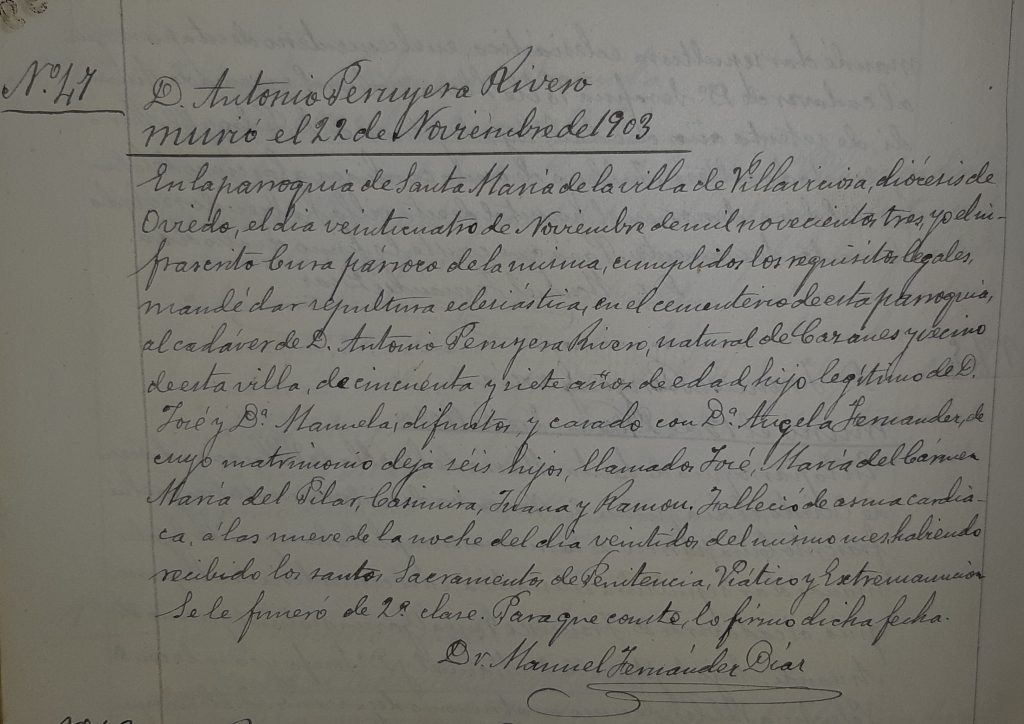 Nº 47
D. Antonio Peruyera Rivero
murió el 22 de Noviembre de 1903
En la parroquia de Santa María de la villa de Villaviciosa, diócesis de
Oviedo, el dia veinticuatro de Noviembre de mil novecientos tres, yo el in-
frascrito Cura párroco de la misma, cumplidos los requisitos legales,
mandé dar sepultura eclesiástica, en el cementerio de esta parroquia,
al cadáver de D. Antonio Peruyera Rivero, natural de Cazanes y vecino
de esta villa, de cincuenta y siete años de edad, hijo legítimo de D.
José y Dª Manuela, difuntos, y casado con Dª Angela Fernandez, de
cuyo matrimonio deja séis hijos, llamados José, María del Cármen
María del Pilar, Casimira, Juana y Ramon. Falleció de asma cardia-
ca, á las nueve de la noche del dia veintidos del mismo mes, habiendo
recibido los santos Sacramentos de Penitencia, Viático y Extremauncion
Se le funeró de 2ª clase. Para que conste, lo firmo dicha fecha.
Dr. Manuel Fernández Díaz